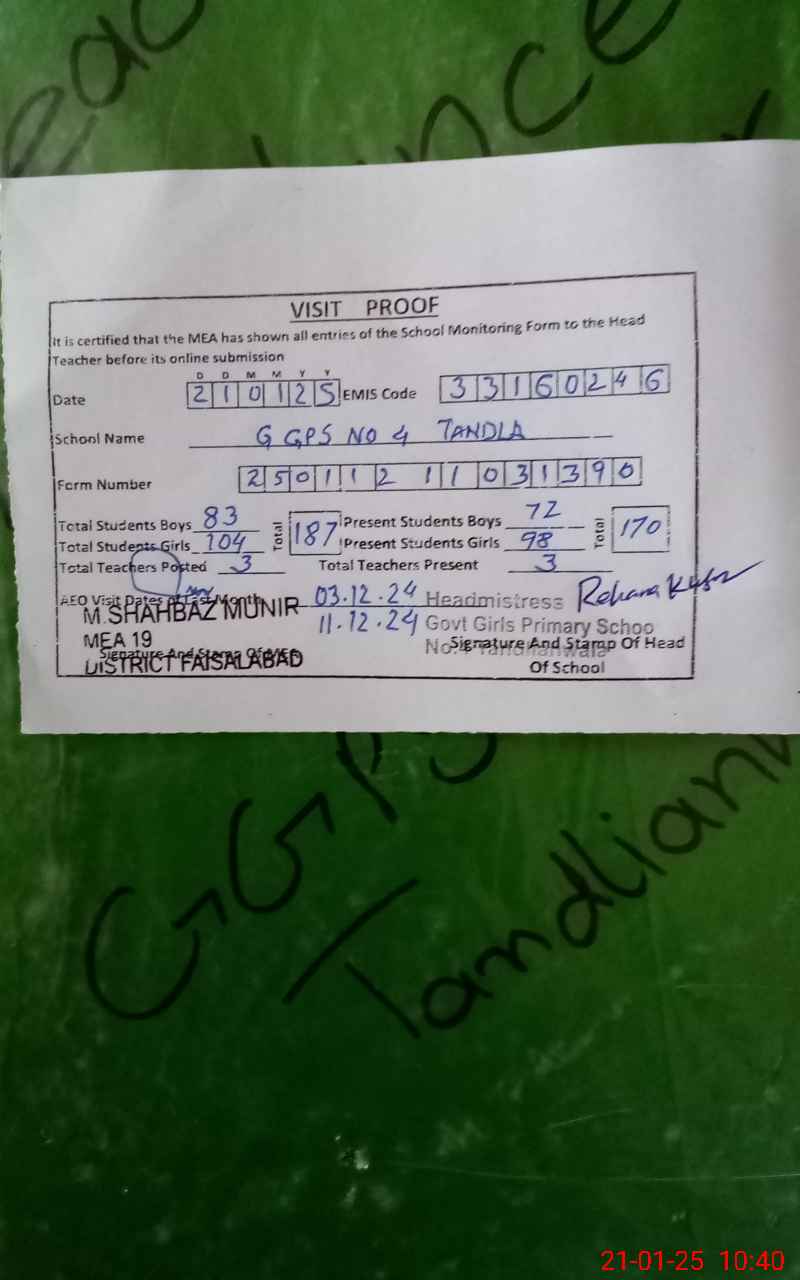 VISIT PROOF
It is certified that the MEA has shown all entries of the School Monitoring Form to the Head
Teacher before its online submission
D D M M Y Y
Date 210125 EMIS Code 33160246
School Name G GPS NO 4 TANDLA
Form Number 25011211031390
Total Students Boys 83 Total 187 Present Students Boys 72 Total 170
Total Students Girls 104 Present Students Girls 98
Total Teachers Posted 3 Total Teachers Present 3
AEO Visit Dates of Last Month 03.12.24
11.12.24
M.SHAHBAZ MUNIR
MEA 19
DISTRICT FAISALABAD
Signature And Stamp Of MEA
Headmistress
Govt Girls Primary Schoo
No.4 Tandlianwala
Signature And Stamp Of Head
Of School
GGPS
Tandlian
21-01-25 10:40